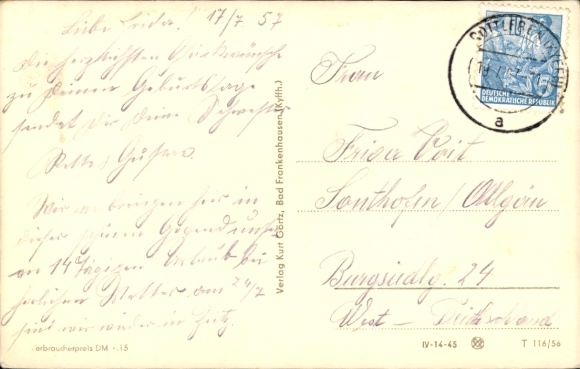 Liebe Frida! 17/7 57
Die herzlichsten Glückwünsche
zu Deinem Geburtstage
sendet Dir Deine Schwester
Wir verbringen hier in
dieser schönen Gegend unsern
14 Tägigen Urlaub bei
herrlichem Wetter am 24/7
sind wir wieder in Zeitz.
Verbraucherpreis DM -.15
Verlag Kurt Görtz, Bad Frankenhausen (Kyffh.)
DEUTSCHE
DEMOKRATISCHE REPUBLIK
a
Frau
Frida Voit
Sonthofen / Allgäu
Burgsiedlg. 24
West - Deutschland
IV-14-45 T 116/56